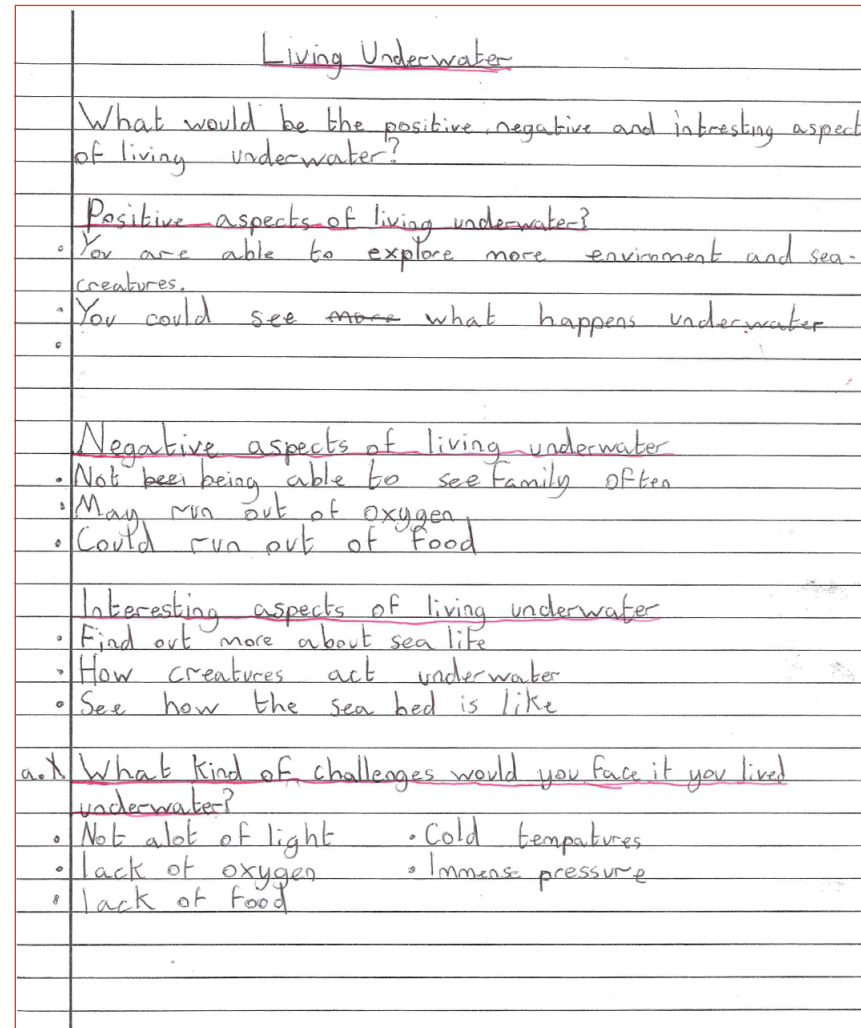 Living Underwater
What would be the positive, negative and intresting aspect
of living underwater?
Positive aspects of living underwater?
• You are able to explore more enviroment and sea-
creatures.
• You could see ~~more~~ what happens underwater
•
Negative aspects of living underwater
• Not ~~beei~~ being able to see family often
• May run out of oxygen
• Could run out of food
Interesting aspects of living underwater
• Find out more about sea life
• How creatures act underwater
• See how the sea bed is like
a.) What kind of challenges would you face if you lived
underwater?
• Not alot of light • Cold tempatures
• lack of oxygen • Immense pressure
• lack of food